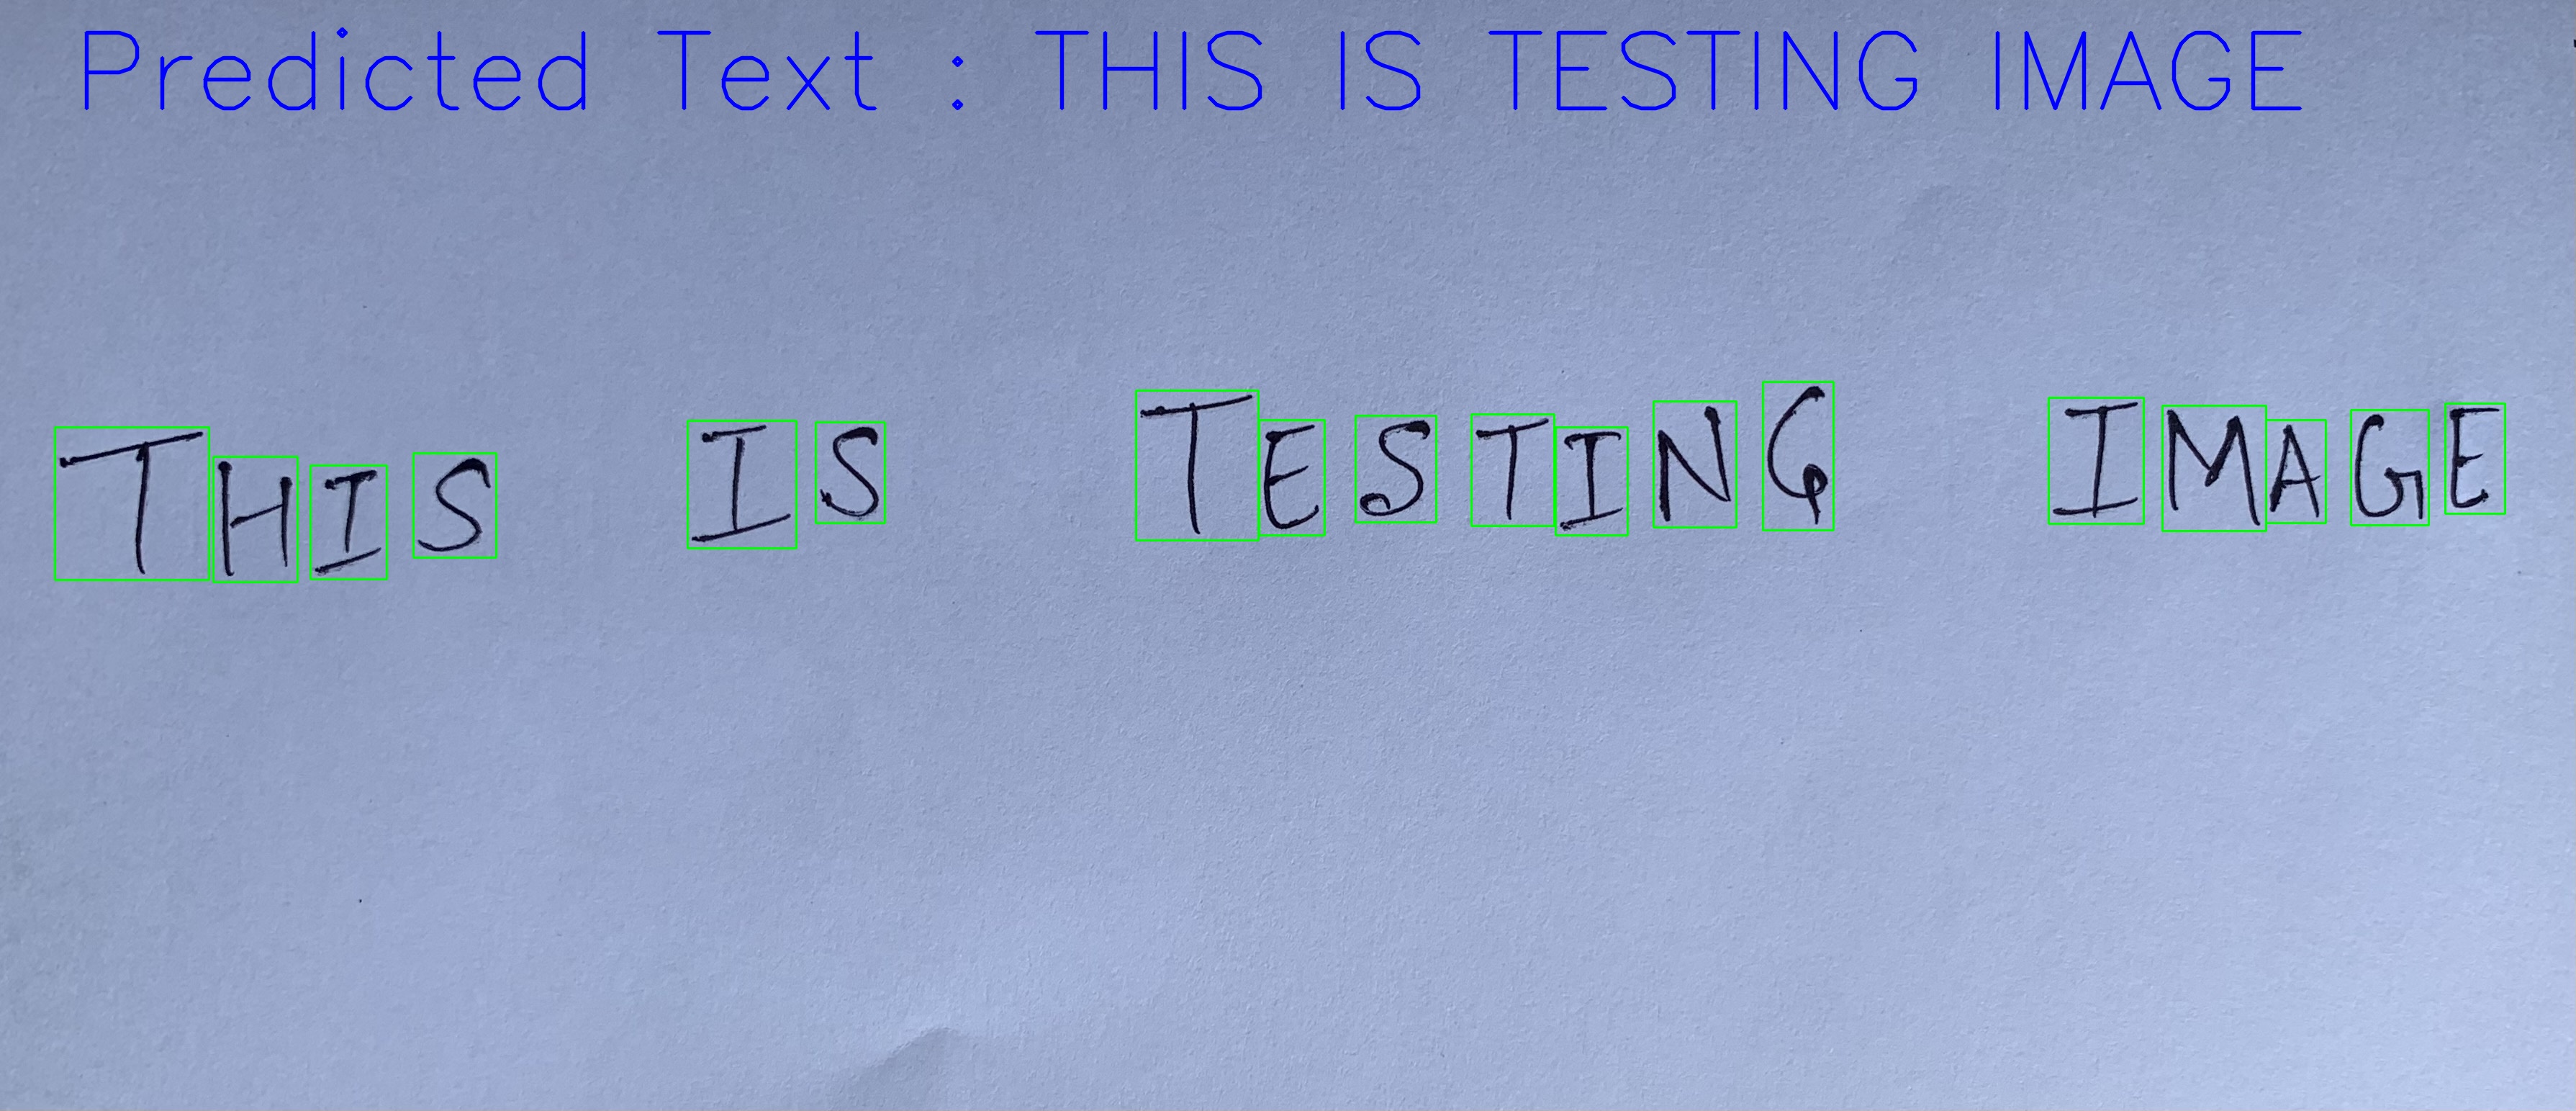 Predicted Text : THIS IS TESTING IMAGE
THIS IS TESTING IMAGE